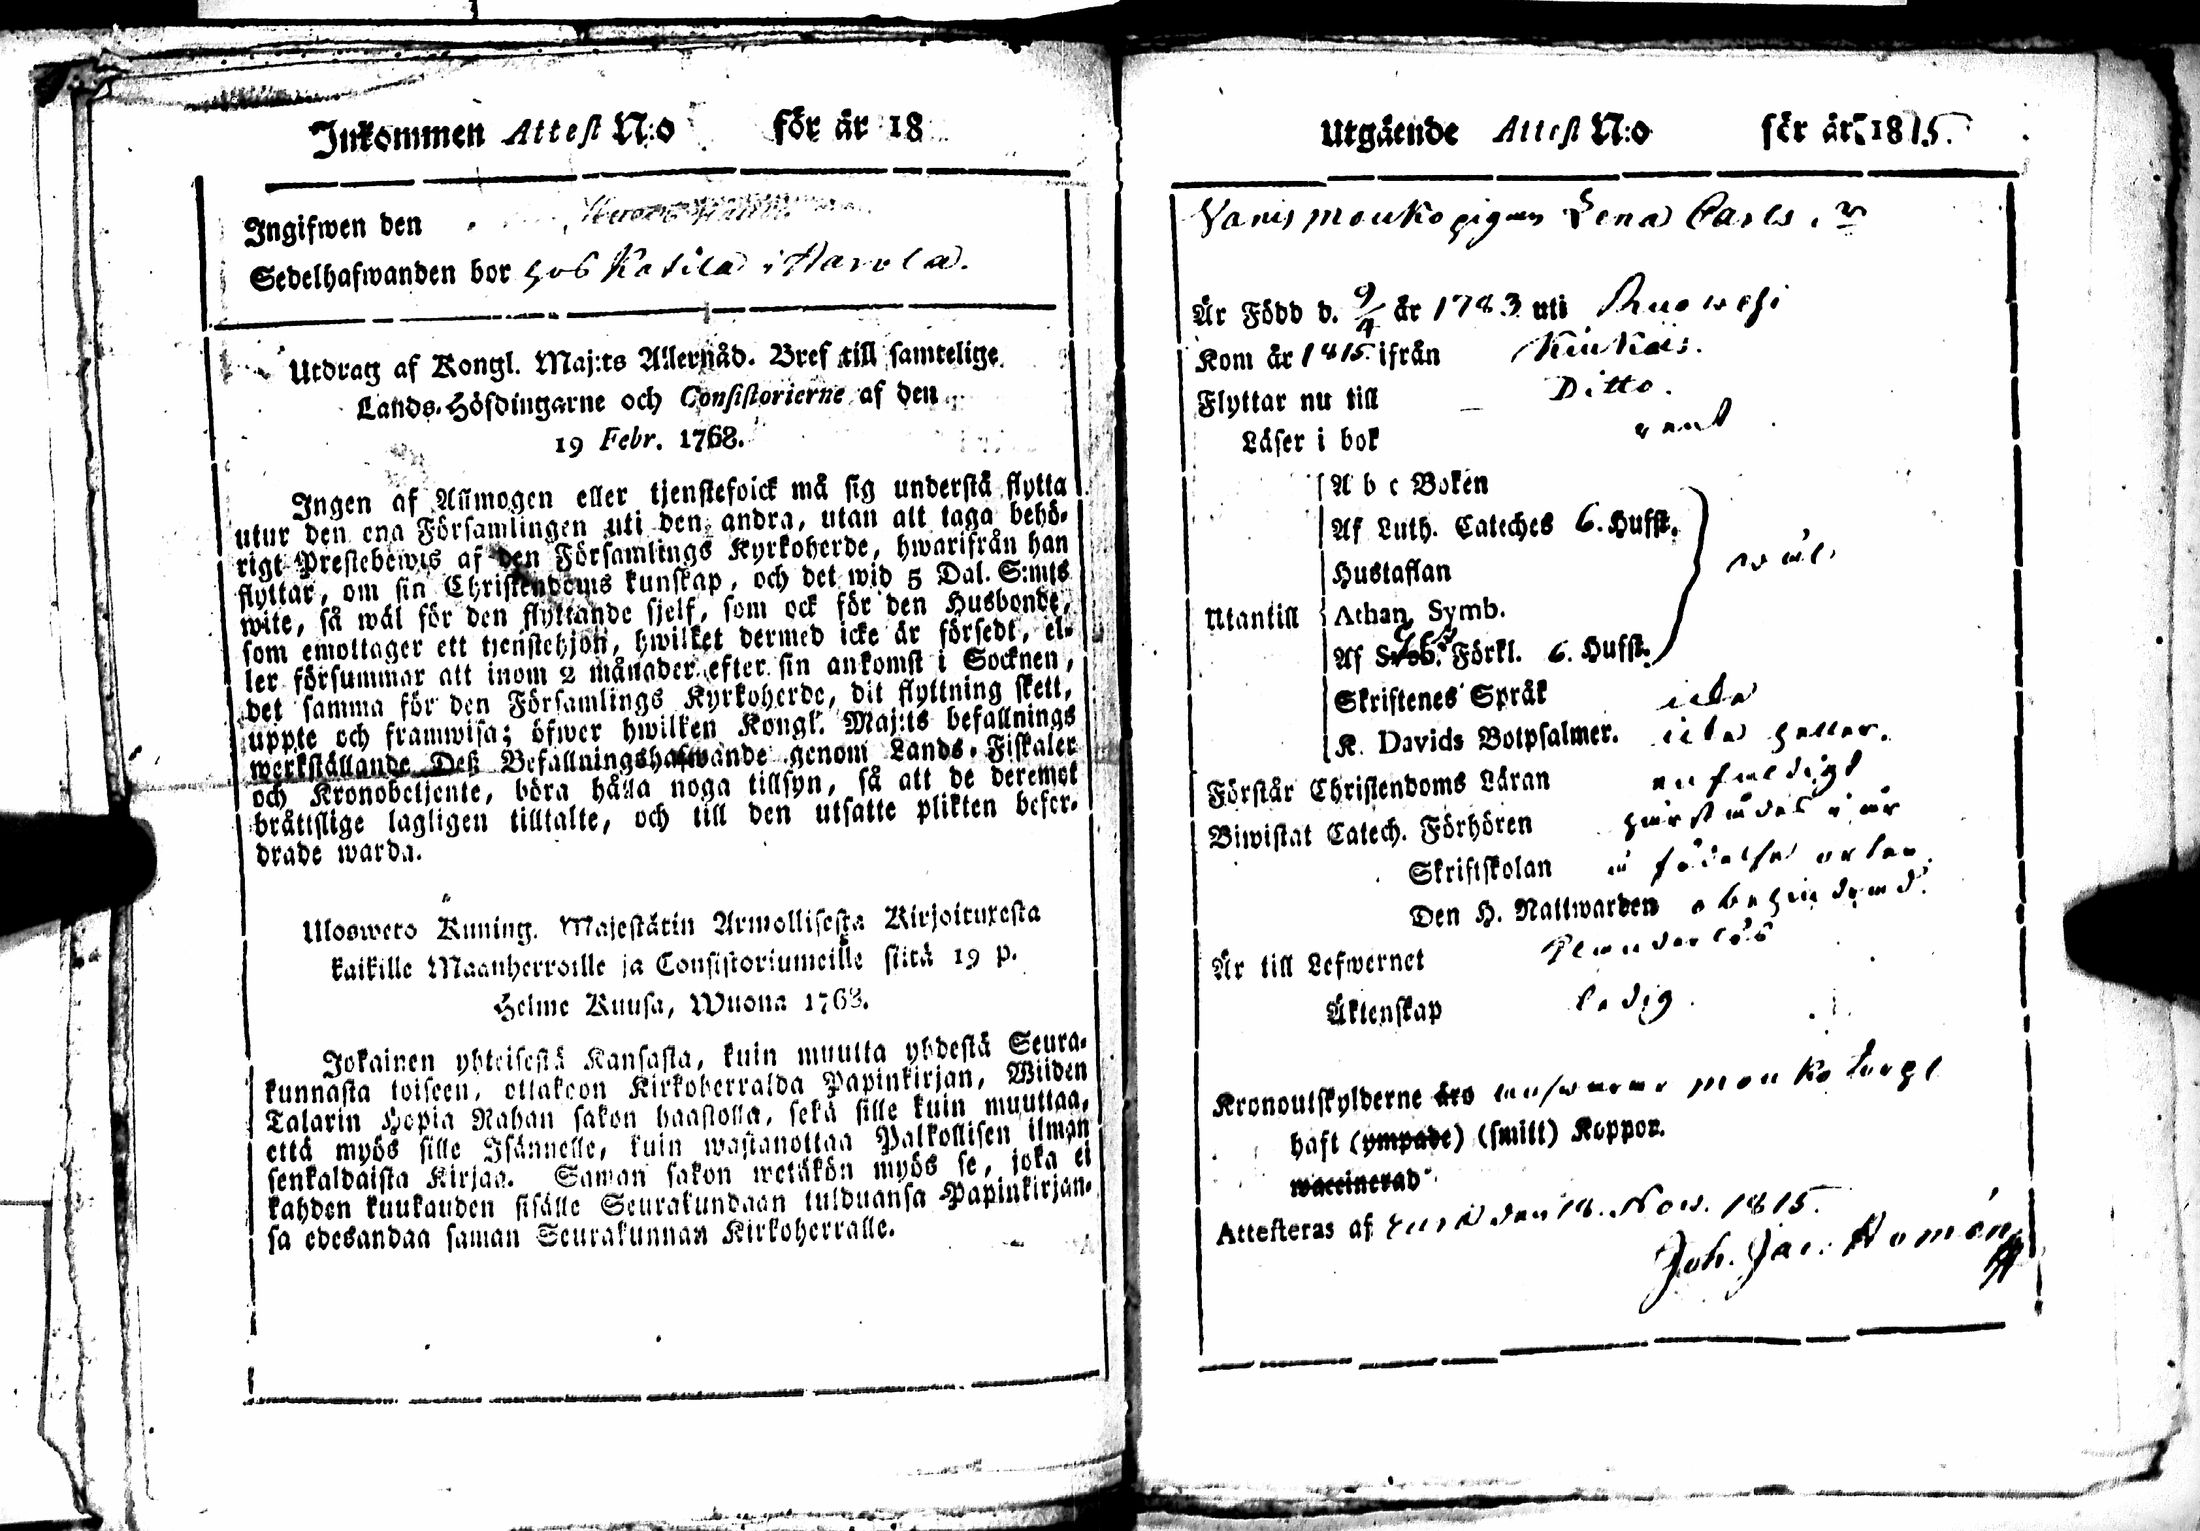 Inkommen Attest N:o för år 18
Ingifwen den
Sedelhafwanden bor hos Katila i Harola.
Utdrag af Kongl. Maj:ts Allernåd. Bref till samtelige
Lands-Höfdingarne och Consistorierne af den
19 Febr. 1768.
Ingen af Allmogen eller tjenstefolck må sig understå flytta
utur den ena Församlingen uti den andra, utan att taga behö-
rigt Prestebewis af den Församlings Kyrkoherde, hwarifrån han
flyttar, om sin Christendoms kunskap, och det wid 5 Dal. S:mts
wite, så wäl för den flyttande sjelf, som ock för den Husbonde,
som emottager ett tjenstehjon, hwilket dermed icke är försedt, el-
ler försummar att inom 2 månader efter sin ankomst i Socknen,
det samma för den Församlings Kyrkoherde, dit flyttning skett,
uppte och framwisa; öfwer hwilken Kongl. Maj:ts befallnings
werkställande Deß Befallningshafwande genom Lands-Fiskaler
och Kronobetjente, böra hålla noga tillsyn, så att de deremot
bråttslige lagligen tilltalte, och till den utsatte plikten befor-
drade warda.
Uloswero Kuning. Majestätin Armollisesta Kirjoituxesta
kaikille Maanherroille ja Consistoriumeille siitä 19 p.
Helme Kuusa, Wuona 1768.
Jokainen yhteisestä Kansasta, kuin muutta yhdestä Seura-
kunnasta toiseen, ottakoon Kirkoherralda Papinkirjan, Wiiden
Talarin Hopia Rahan sakon haastolla, sekä sille kuin muuttaa,
että myös sille Isännelle, kuin wastanottaa Palkollisen ilman
senkaldaista Kirjaa. Saman sakon wetäkön myös se, joka ei
kahden kuukauden sisälle Seurakundaan tulduansa Papinkirjan-
sa edesandaa saman Seurakunnan Kirkoherralle.
Utgående Attest N:o för år 1815.
Lena Carls
Är Född d. 9/4 år 1783 uti Ruowesi
Kom år 1815 ifrån Kiukais.
Flyttar nu till Ditto.
Läser i bok rent
Utantill
A b c Boken
Af Luth. Cateches 6. Hufst.
Hustaflan
Athan. Symb.
Af Förkl. 6. Hufst.
wäl
Skriftenes Språk icke
K. Davids Botpsalmer. icke heller.
Förstår Christendoms Läran enfaldigt
Biwistat Catech. Förhören härstädes i år
Skriftskolan i födelse orten.
Den H. Nattwarden obehindrad.
Är till Lefwernet klanderlös
Äktenskap ledig.
Kronoutskylderne åro
haft (ympade) (smitt) Koppor.
waccinerad
Attesteras af Eura den 18. Nov. 1815.
Joh. Jac. Homén